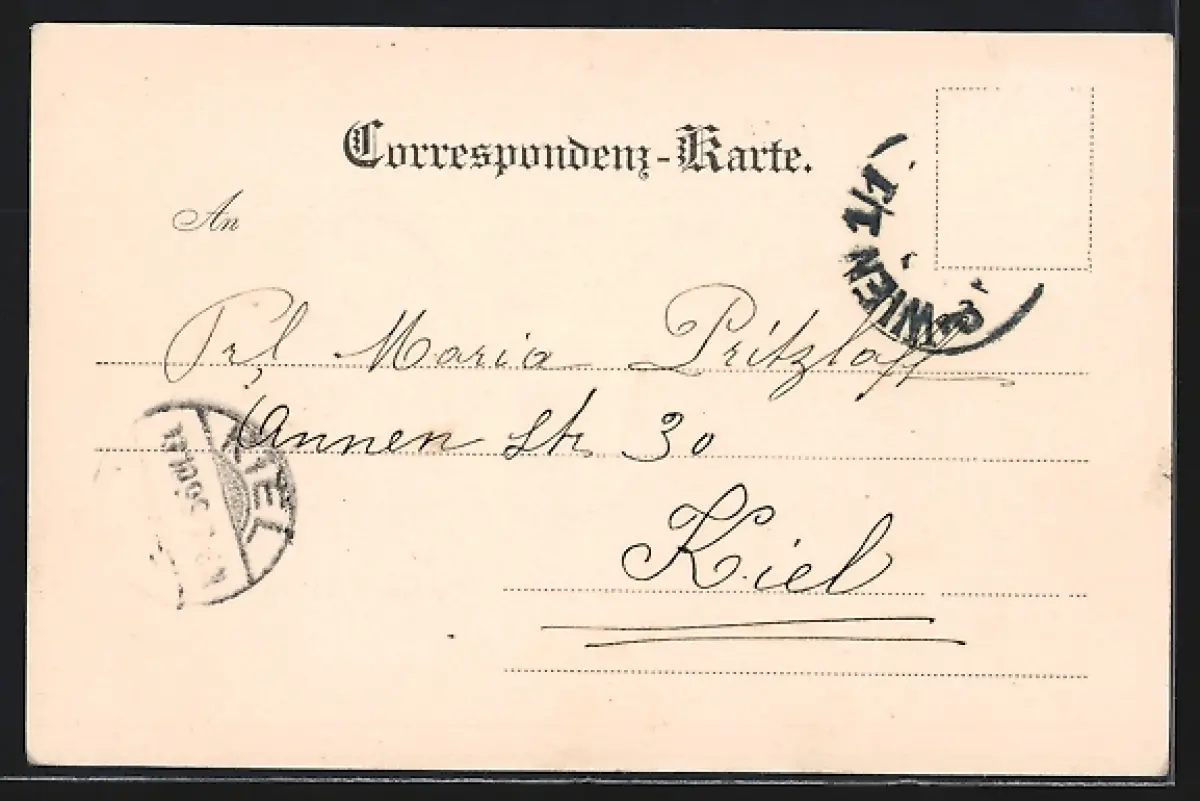 Correspondenz-Karte.
WIEN 1/1
An
Frl Maria Pritzlaff
Annen Str. 30
KIEL
Kiel